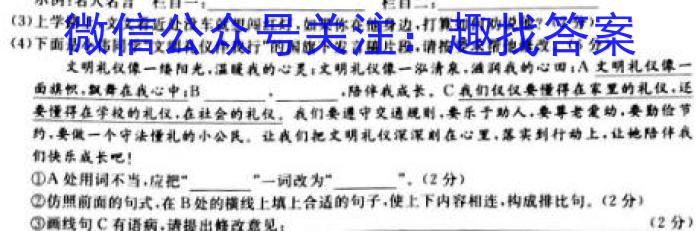 示例：名人名言 栏目一： 栏目二：
(3)上学
微信公众号关注：趣找答案
(4)下面
文明礼仪像一缕阳光,温暖我的心灵;文明礼仪像一泓清泉,滋润我的心田;A 文明礼仪像一
面旗帜,飘舞在我心中;B ,陪伴我成长。C 我们仅仅要懂得在家里的礼仪,还
要懂得在学校的礼仪,在社会的礼仪。我们要遵守交通规则,要乐于助人,要尊老爱幼,要勤俭节
约,要做一个守法懂礼的小公民。让我们把文明礼仪深深刻在心里,落实到行动上,让她陪伴我
们快乐成长吧!
①A 处用词不当,应把“ ”一词改为“ ”。(2 分)
②仿照前面的句式,在 B 处的横线上填上合适的句子,使上下内容相连,构成排比句。(2 分)
③画线句 C 有语病,请提出修改意见: (2 分)